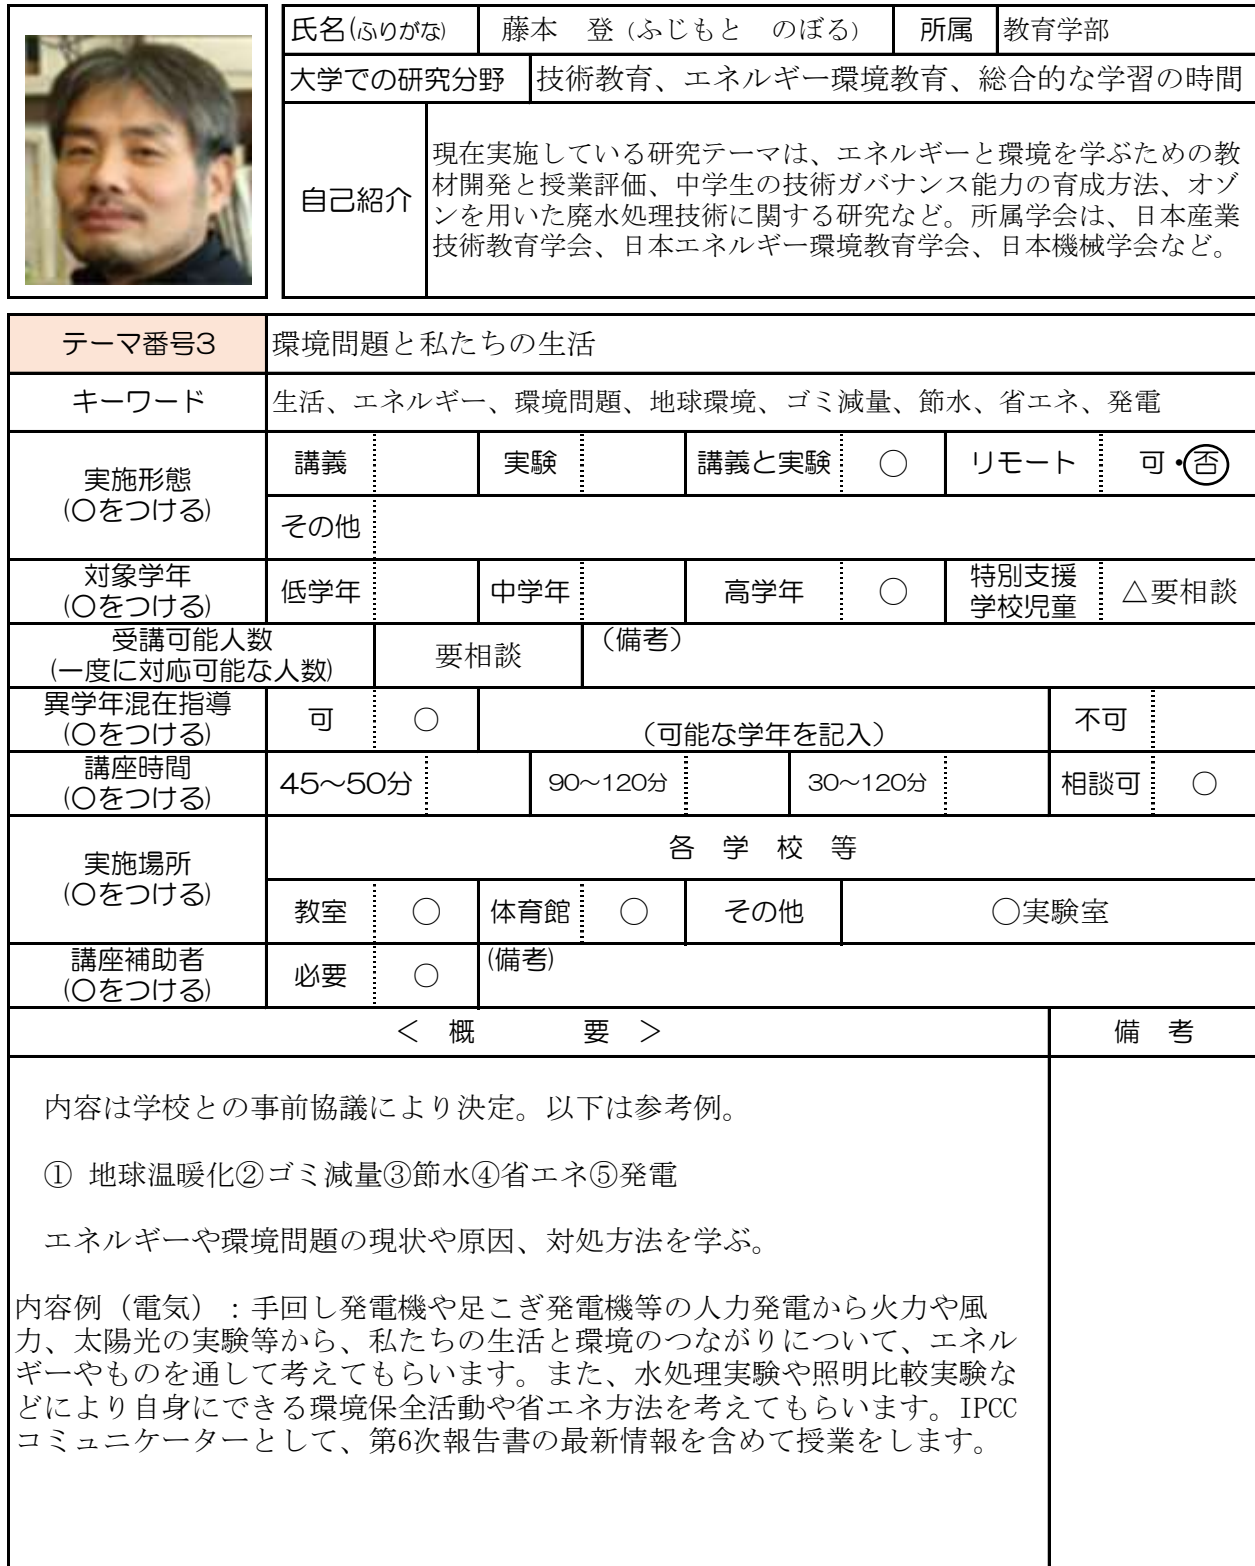 氏名(ふりがな) 藤本 登（ふじもと のぼる） 所属 教育学部
大学での研究分野 技術教育、エネルギー環境教育、総合的な学習の時間
自己紹介
現在実施している研究テーマは、エネルギーと環境を学ぶための教
材開発と授業評価、中学生の技術ガバナンス能力の育成方法、オゾ
ンを用いた廃水処理技術に関する研究など。所属学会は、日本産業
技術教育学会、日本エネルギー環境教育学会、日本機械学会など。
テーマ番号3 環境問題と私たちの生活
キーワード 生活、エネルギー、環境問題、地球環境、ゴミ減量、節水、省エネ、発電
実施形態
(〇をつける)
講義 実験 講義と実験 〇 リモート 可・否
その他
対象学年
(〇をつける)
低学年 中学年 高学年 〇 特別支援
学校児童 △要相談
受講可能人数
(一度に対応可能な人数)
要相談 （備考）
異学年混在指導
(〇をつける)
可 〇 （可能な学年を記入） 不可
講座時間
(〇をつける)
45～50分 90～120分 30～120分 相談可 〇
実施場所
(〇をつける)
各 学 校 等
教室 〇 体育館 〇 その他 〇実験室
講座補助者
(〇をつける)
必要 〇 (備考)
＜ 概 要 ＞ 備 考
内容は学校との事前協議により決定。以下は参考例。
① 地球温暖化②ゴミ減量③節水④省エネ⑤発電
エネルギーや環境問題の現状や原因、対処方法を学ぶ。
内容例（電気）：手回し発電機や足こぎ発電機等の人力発電から火力や風
力、太陽光の実験等から、私たちの生活と環境のつながりについて、エネル
ギーやものを通して考えてもらいます。また、水処理実験や照明比較実験な
どにより自身にできる環境保全活動や省エネ方法を考えてもらいます。IPCC
コミュニケーターとして、第6次報告書の最新情報を含めて授業をします。